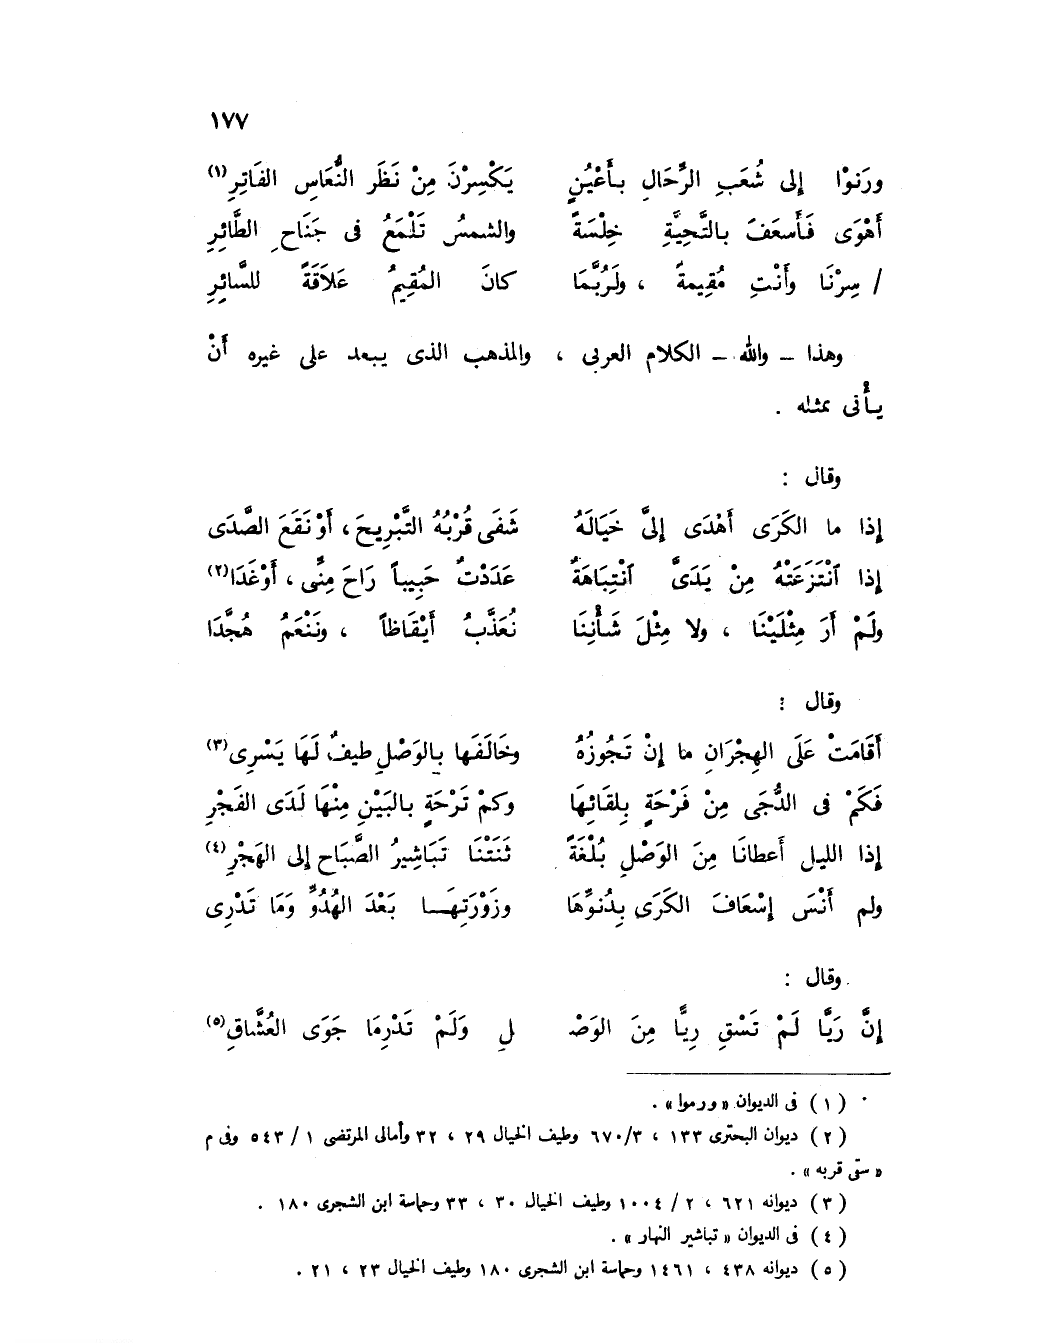 ١٧٧
ورَنوْا إلى شُعَبِ الرِّحَالِ بأَعْيُنٍ يَكْسِرْنَ مِنْ نَظَر النُّعَاسِ الفَاتِرِ(١)
أَهْوَى فَأَسعَفَ بالتَّحِيَّةِ خِلْسَةً والشمسُ تَلْمَعُ فى جَنَاحِ الطَّائِرِ
/ سِرْنَا وأَنْتِ مُقِيمةٌ ، ولَرُبَّمَا كانَ المُقِيمُ عَلاَقَةً للسَّائِرِ
وهذا ــ والله ــ الكلام العربى ، والمذهب الذى يبعد على غيره أَنْ
يأْتى بمثله .
وقال :
إذا ما الكَرَى أَهْدَى إلىَّ خَيَالَهُ شَفَى قُرْبُهُ التَّبْرِيحَ ، أَوْ نَقَعَ الصَّدَى
إذا ٱنْتَزَعَتْهُ مِنْ يَدَىَّ ٱنْتِبَاهَةٌ عَدَدْتُ حَبِيباً رَاحَ مِنِّى ، أَوْ غَدَا(٢)
ولَمْ أَرَ مِثْلَيْنَا ، ولا مِثْلَ شَأْنِنَا نُعَذَّبُ أَيْقَاظاً ، ونَنْعَمُ هُجَّدَا
وقال :
أَقَامَتْ عَلَى الهِجْرَانِ ما إنْ تَجُوزُهُ وخَالَفَها بالوَصْلِ طيفٌ لَهَا يَسْرِى(٣)
فَكَمْ فى الدُّجَى مِنْ فَرْحَةٍ بِلقَائِهَا وكمْ تَرْحَةٍ بالبَيْنِ مِنْهَا لَدَى الفَجْرِ
إذا الليل أَعطانَا مِنَ الوَصْلِ بُلْغَةً ثَنَتْنَا تَبَاشِيرُ الصَّبَاحِ إلى الهَجْرِ(٤)
ولم أَنْسَ إسْعَافَ الكَرَى بِدُنوِّهَا وزَوْرَتِهَــا بَعْدَ الهُدُوِّ وَمَا تَدْرِى
وقال :
إنَّ رَيَّا لَمْ تَسْقِ رِيًّا مِنَ الوَصْـ لِ وَلَمْ تَدْرِمَا جَوَى العُشَّاقِ(٥)
( ١ ) فى الديوان « ورموا » .
( ٢ ) ديوان البحترى ١٣٣ ، ٦٧٠/٣ وطيف الخيال ٢٩ ، ٣٢ وأمالى المرتضى ١ / ٥٤٣ وفى م
« سقى قربه » .
( ٣ ) ديوانه ٦٢١ ، ٢ / ١٠٠٤ وطيف الخيال ٣٠ ، ٣٣ وحماسة ابن الشجرى ١٨٠ .
( ٤ ) فى الديوان « تباشير النهار » .
( ٥ ) ديوانه ٤٣٨ ، ١٤٦١ وحماسة ابن الشجرى ١٨٠ وطيف الخيال ٢٣ ، ٢١ .